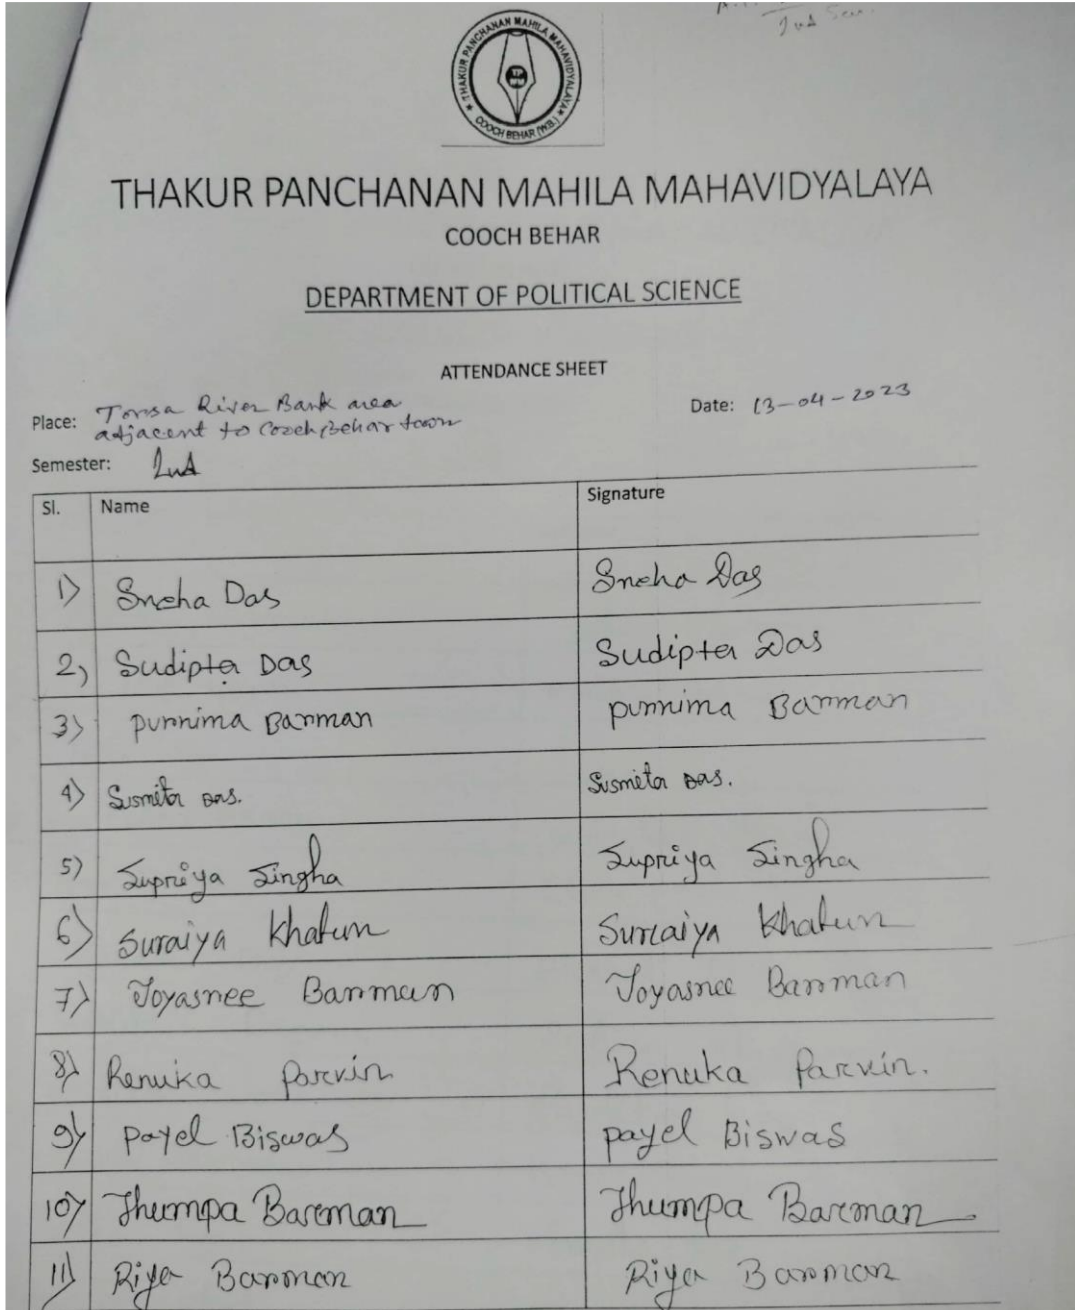 THAKUR PANCHANAN MAHILA MAHAVIDYALAYA
COOCH BEHAR (W.B.)
THAKUR PANCHANAN MAHILA MAHAVIDYALAYA
COOCH BEHAR
DEPARTMENT OF POLITICAL SCIENCE
ATTENDANCE SHEET
Place: Torsa River Bank area
adjacent to Cooch Behar town
Date: 13-04-2023
Semester: 2nd
Sl. Name Signature
1) Sneha Das Sneha Das
2) Sudipta Das Sudipta Das
3) Purnima Barman purnima Barman
4) Susmita Das. Susmita Das.
5) Supriya Singha Supriya Singha
6) Suraiya Khatun Suraiya Khatun
7) Joyasree Barman Joyasree Barman
8) Renuka Parvin Renuka Parvin.
9) Payel Biswas payel Biswas
10) Jhumpa Barman Jhumpa Barman
11) Riya Barman Riya Barman